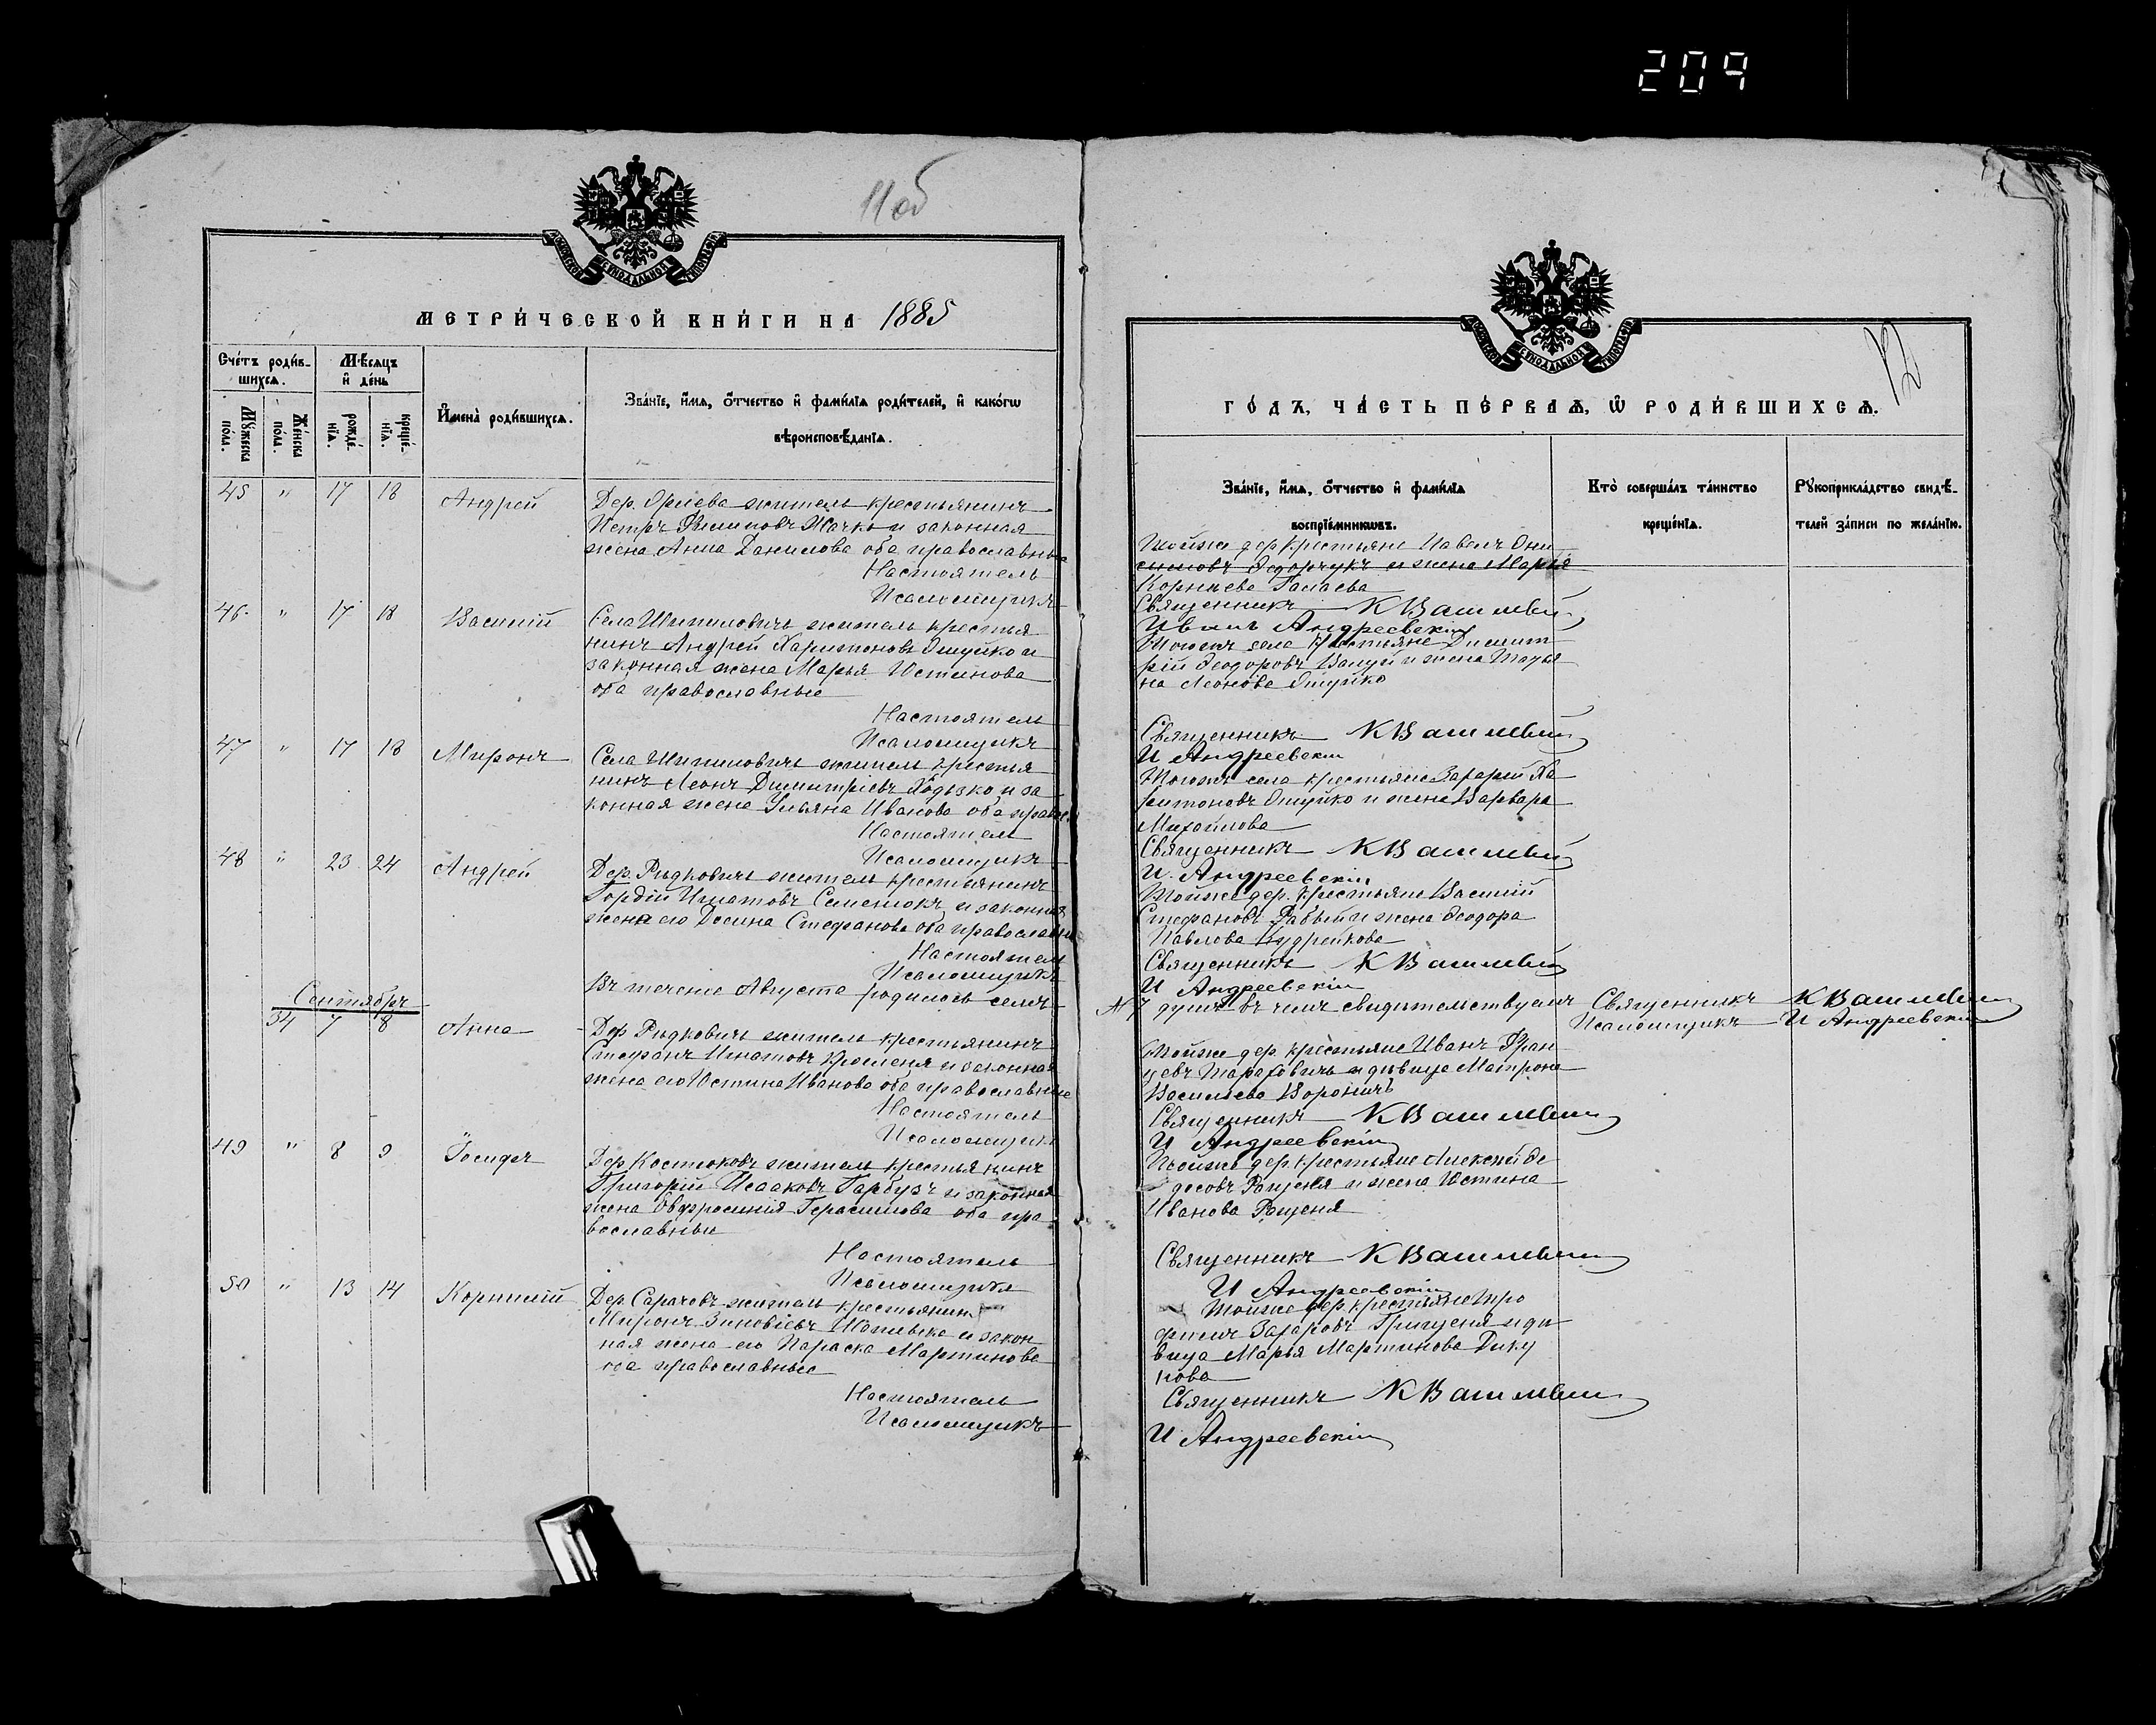 209
11 об
МОСКОВСКОЙ СУНОДАЛЬНОЙ ТИПОГРАФІИ
МЕТРИ́ЧЕСКОЙ КНИ́ГИ НА 1885
Сче́тъ роди́в-
шихсѧ.
Мѣ́сѧцъ
и҆ де́нь
И҆мена̀ роди́вшихсѧ.
Зва́нїе, и҆́мѧ, ѻ҆́тчество и҆ фами́лїѧ роди́телей, и҆ како́гѡ
вѣроисповѣ́данїѧ.
Мꙋ́жеска
по́ла.
Же́нска
по́ла.
рожде́-
нїѧ.
креще́-
нїѧ.
45 " 17 18 Андрей
Дер. Орлева житель крестьянинъ
Петръ Филиповъ Жачко и законная
жена Анна Данилова оба православные
Настоятель
Псаломщикъ
46 " 17 18 Василій
Села Шпиловичъ житель крестья
нинъ Андрей Харитоновъ Ошуйко и
законная жена Марья Устинова
оба православные
Настоятель
Псаломщикъ
47 " 17 18 Миронъ
Села Шпиловичъ житель крестья
нинъ Леонъ Димитріевъ Ходько и за
конная жена Ульяна Иванова оба правос.
Настоятель
Псаломщикъ
48 " 23 24 Андрей
Дер. Рѣдковичъ житель крестьянинъ
Гордій Игнатовъ Семенюкъ и законная
жена его Стефанова оба православны
Настоятель
Псаломщикъ
Въ теченіе Августа родилось семь
Сентябрь
34 7 8 Анна
Дер Рѣдковичъ житель крестьянинъ
Стефанъ Игнатовъ и законная
жена его Юстина Иванова оба православные
Настоятель
Псаломщикъ
49 " 8 9 Іосифъ
Дер. Костюковъ житель крестья нинъ
Григорій Исааковъ Гарбузъ и законная
жена Евфросинія Герасимова оба пра
вославные
Настоятель
Псаломщикъ
50 " 13 14 Корнилій
Дер. Сарачовъ житель крестьянинъ
Миронъ Зиновіевъ и закон
ная жена его Параска Мартинова
оба православные
Настоятель
Псаломщикъ
12
МОСКОВСКОЙ СУНОДАЛЬНОЙ ТИПОГРАФІИ
ГО́ДЪ, ЧА́СТЬ ПЕ́РВАѦ, Ѽ РОДИ́ВШИХСѦ.
Зва́нїе, и҆́мѧ, ѻ҆́тчество и҆ фами́лїѧ
воспрїе́мникѡвъ.
Кто̀ соверша́лъ та́инство
креще́нїѧ.
Рꙋкоприкла́дство свидѣ́-
телей за́писи по жела́нїю.
Тойже дер крестьяне Павелъ Они
симовъ Ѳедорчукъ и жена Марья
Корнѣева Галаева
Священникъ К Васил
Иванъ Андреевскій
Тогожъ села крестьяне Димит
рій Ѳеодоровъ и жена Татья
на Леонова Ошуйко
Священникъ К Васил
И Андреевскій
Тогожъ села крестьяне Захарій Ха
ритоновъ Ошуйко и жена Варвара
Михайлова
Священникъ К Васил
И. Андреевскій
Тойже дер. крестьяне Василій
Стефановъ Рабый и жена Ѳеодора
Павлова Кудрейкова
Священникъ К Васил
И Андреевскій
7 душъ въ чемъ свидѣтельствуемъ Священникъ К Васил
Псаломщикъ И Андреевскій
Тойже дер. крестьяне Иванъ Фран
цевъ Тарасовичъ и дѣвица Матрона
Васильева Вороничъ
Священникъ К Васил
И Андреевскій
Тойже дер. крестьяне Алексѣй Ѳе
досовъ Рощеня и жена Юстина
Иванова Рощеня
Священникъ К Васил
И Андреевскій
Тойже дер. крестьяне Тро
фимъ Захаровъ Грищеня и дѣ
вица Марья Мартинова Дику
нова
Священникъ К Васил
И Андреевскій